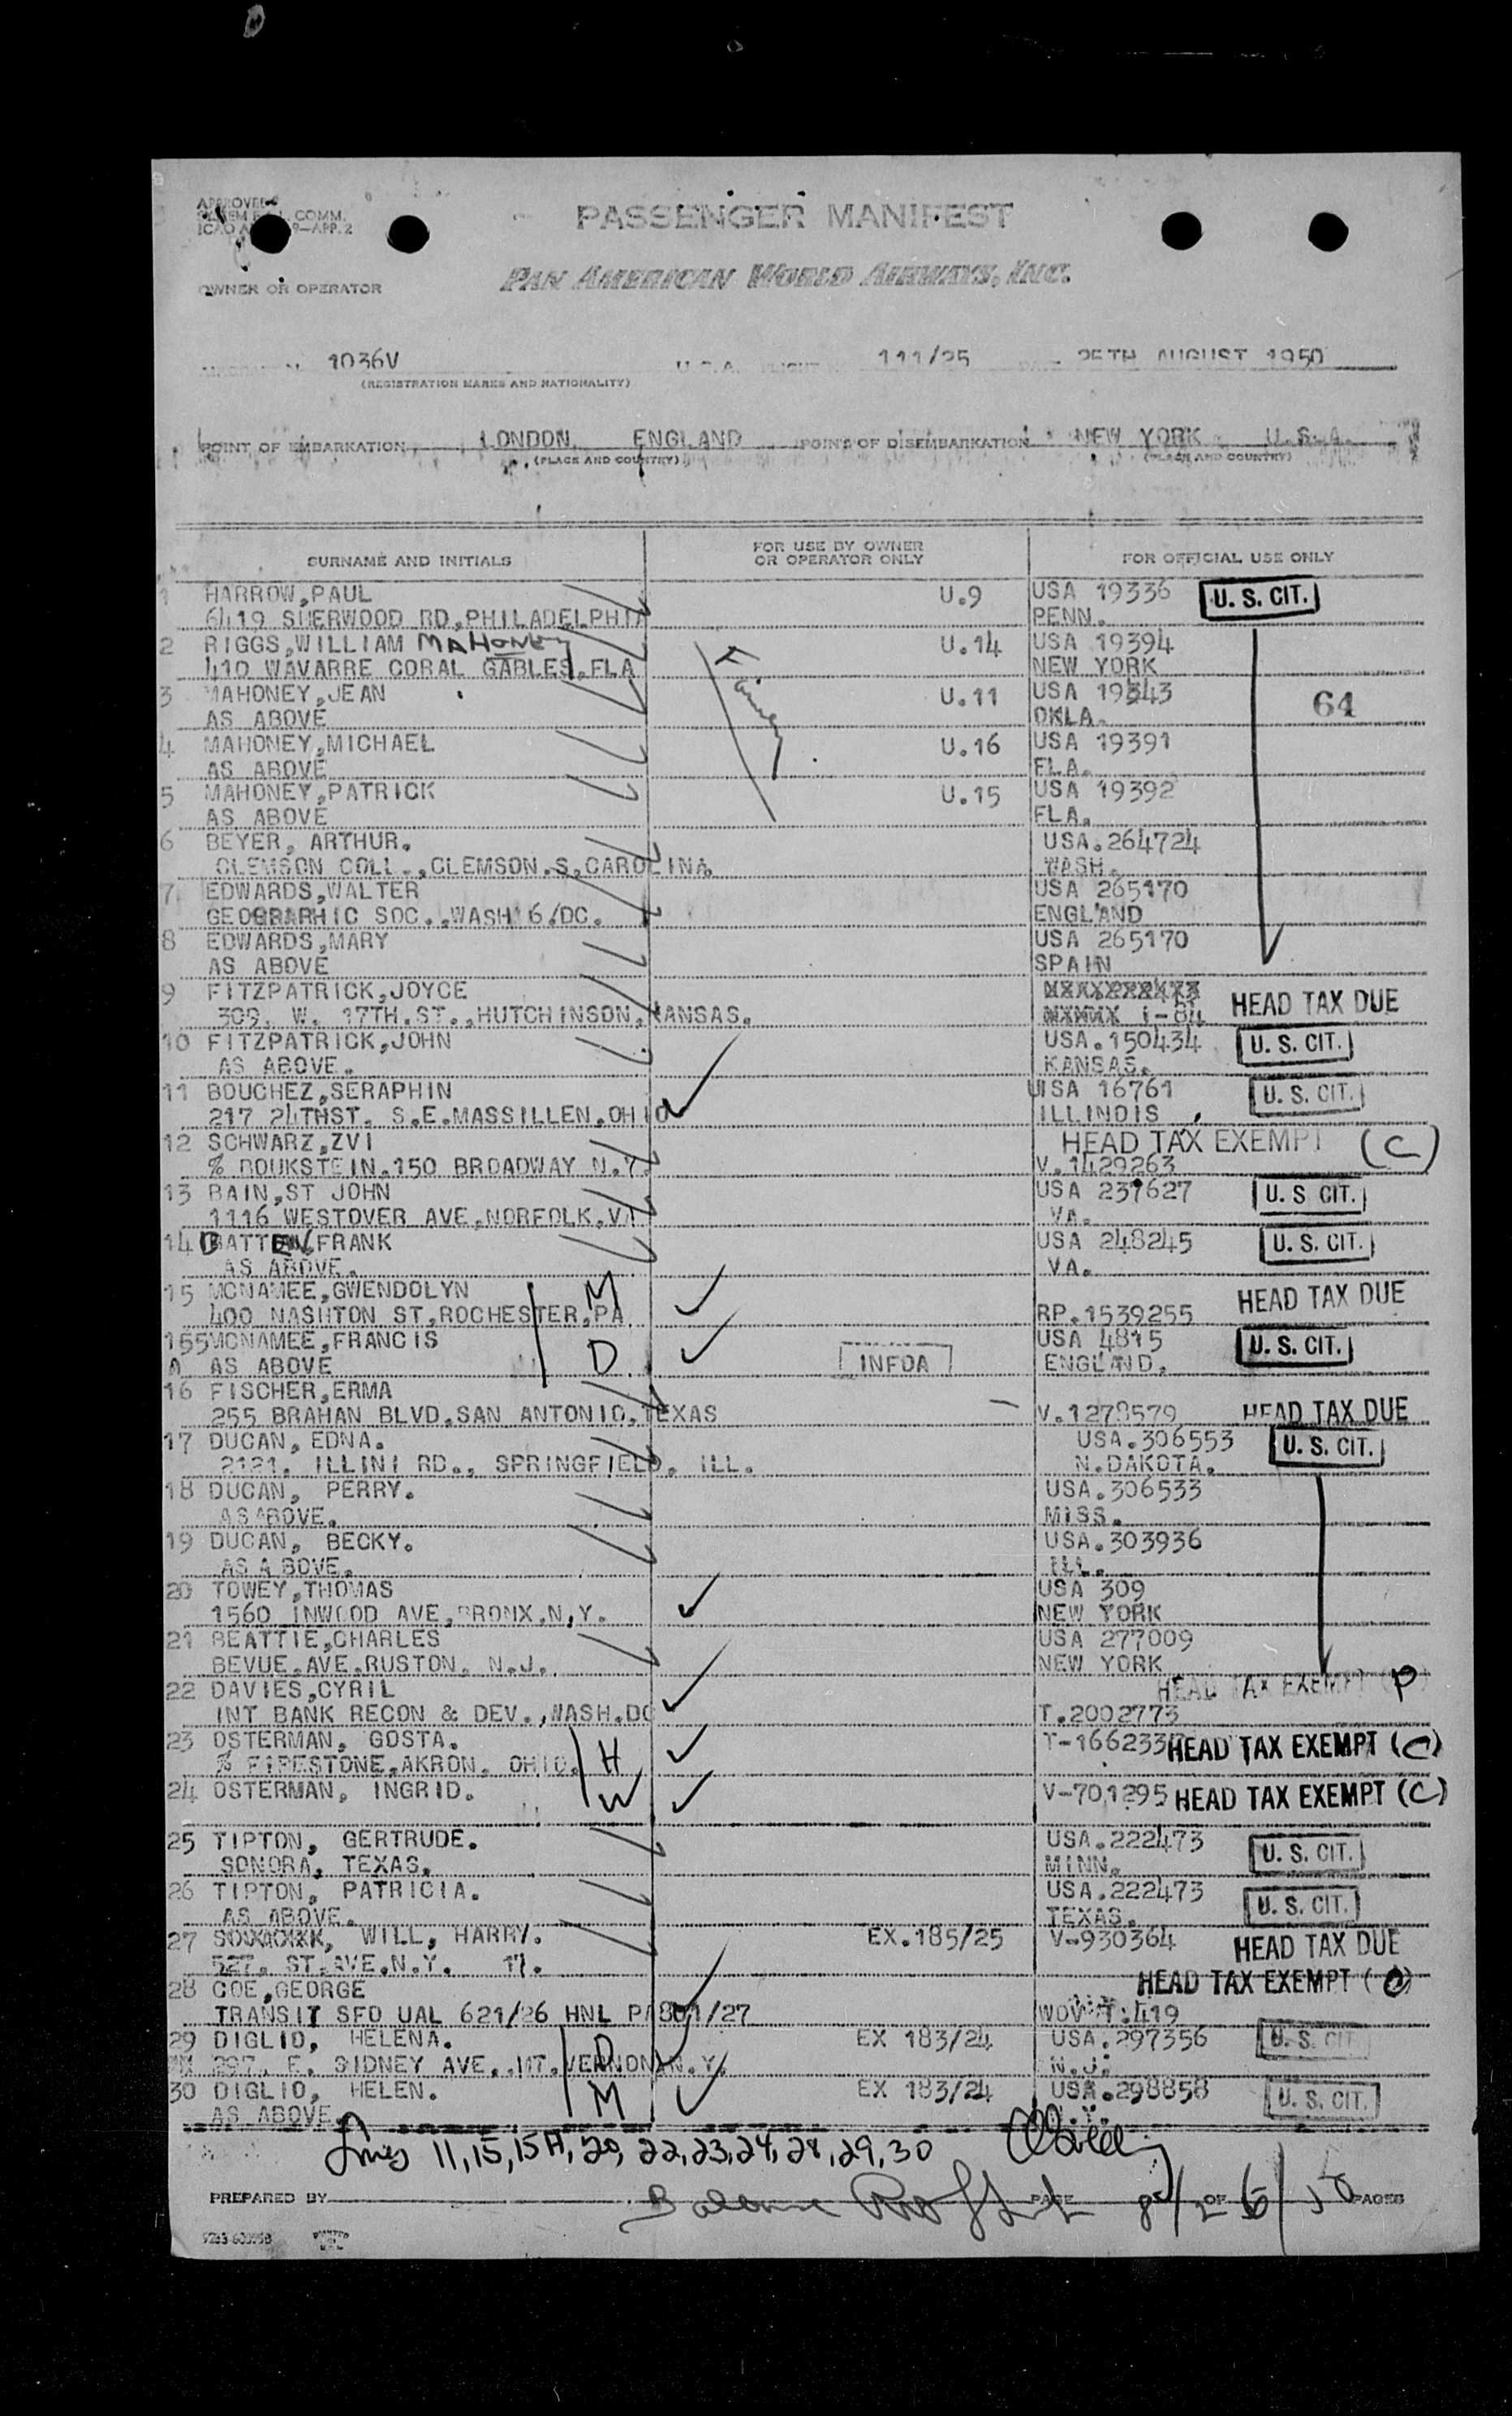 APPROVED
COMM.
-APP.2
PASSENGER MANIFEST
PAN AMERICAN WORLD AIRWAYS, INC.
OWNER OR OPERATOR
1036V 111/25 25TH AUGUST 1950
(REGISTRATION MARKS AND NATIONALITY)
POINT OF EMBARKATION LONDON, ENGLAND POINT OF DISEMBARKATION NEW YORK U.S.A.
(PLACE AND COUNTRY) (PLACE AND COUNTRY)
SURNAME AND INITIALS FOR USE BY OWNER OR OPERATOR ONLY FOR OFFICIAL USE ONLY
1 HARROW,PAUL U.9 USA 19336 U. S. CIT.
6419 SHERWOOD RD,PHILADELPHIA PENN.
2 RIGGS,WILLIAM MAHONEY U.14 USA 19394
410 WAVARRE CORAL GABLES,FLA NEW YORK
Family
3 MAHONEY,JEAN U.11 USA 19343 64
AS ABOVE OKLA.
4 MAHONEY,MICHAEL U.16 USA 19391
AS ABOVE FLA.
5 MAHONEY,PATRICK U.15 USA 19392
AS ABOVE FLA.
6 BEYER, ARTHUR. USA.264724
CLEMSON COLL.,CLEMSON.S.CAROLINA. WASH.
7 EDWARDS,WALTER USA 265170
GEOGRAPHIC SOC.,WASH 6/DC. ENGLAND
8 EDWARDS,MARY USA 265170
AS ABOVE SPAIN
9 FITZPATRICK,JOYCE HEAD TAX DUE
309. W. 17TH.ST.,HUTCHINSON,KANSAS. I-84
10 FITZPATRICK,JOHN USA.150434 U. S. CIT.
AS ABOVE. KANSAS.
11 BOUCHEZ,SERAPHIN USA 16761 U. S. CIT.
217 24THST. S.E.MASSILLEN.OHIO ILLINOIS
12 SCHWARZ,ZVI HEAD TAX EXEMPT (C)
% BOUKSTEIN.150 BROADWAY N.Y. V.1429263
13 BAIN,ST JOHN USA 237627 U. S CIT.
1116 WESTOVER AVE,NORFOLK.VA VA.
14 BATTEN,FRANK USA 248245 U. S. CIT.
AS ABOVE. VA.
15 MCNAMEE,GWENDOLYN M HEAD TAX DUE
400 NASHTON ST,ROCHESTER,PA. RP.1539255
155 MCNAMEE,FRANCIS USA 4815 U. S. CIT.
A AS ABOVE D INFOA ENGLAND.
16 FISCHER,ERMA
255 BRAHAN BLVD.SAN ANTONIO,TEXAS V.1278579 HEAD TAX DUE
17 DUCAN, EDNA. USA.306553 U. S. CIT.
2121. ILLINI RD., SPRINGFIELD, ILL. N.DAKOTA.
18 DUCAN, PERRY. USA.306533
AS ABOVE. MISS.
19 DUCAN, BECKY. USA.303936
AS A BOVE. ILL.
20 TOWEY,THOMAS USA 309
1560 INWOOD AVE,BRONX.N,Y. NEW YORK
21 BEATTIE,CHARLES USA 277009
BEVUE.AVE.RUSTON. N.J. NEW YORK
22 DAVIES,CYRIL HEAD TAX EXEMPT (P)
INT BANK RECON & DEV.,WASH.DC T.2002773
23 OSTERMAN, GOSTA. T-166233 HEAD TAX EXEMPT (C)
% FIRESTONE,AKRON. OHIO. H
24 OSTERMAN, INGRID. W V-701295 HEAD TAX EXEMPT (C)
25 TIPTON, GERTRUDE. USA.222473 U. S. CIT.
SONORA, TEXAS. MINN.
26 TIPTON, PATRICIA. USA.222473 U. S. CIT.
AS ABOVE. TEXAS.
27 WILL, HARRY. EX.185/25 V-930364 HEAD TAX DUE
527. ST.AVE.N.Y. 17.
28 COE,GEORGE HEAD TAX EXEMPT
TRANSIT SFO UAL 621/26 HNL PA801/27 419
29 DIGLIO, HELENA. EX 183/24 USA.297356 U. S. CIT.
297. E. SIDNEY AVE.,MT.VERNON.N.Y. D N.J.
30 DIGLIO, HELEN. EX 183/24 USA.298858 U. S. CIT.
AS ABOVE. M
Lines 11,15,15A,20,22,23,24,28,29,30
PREPARED BY PAGE OF PAGES